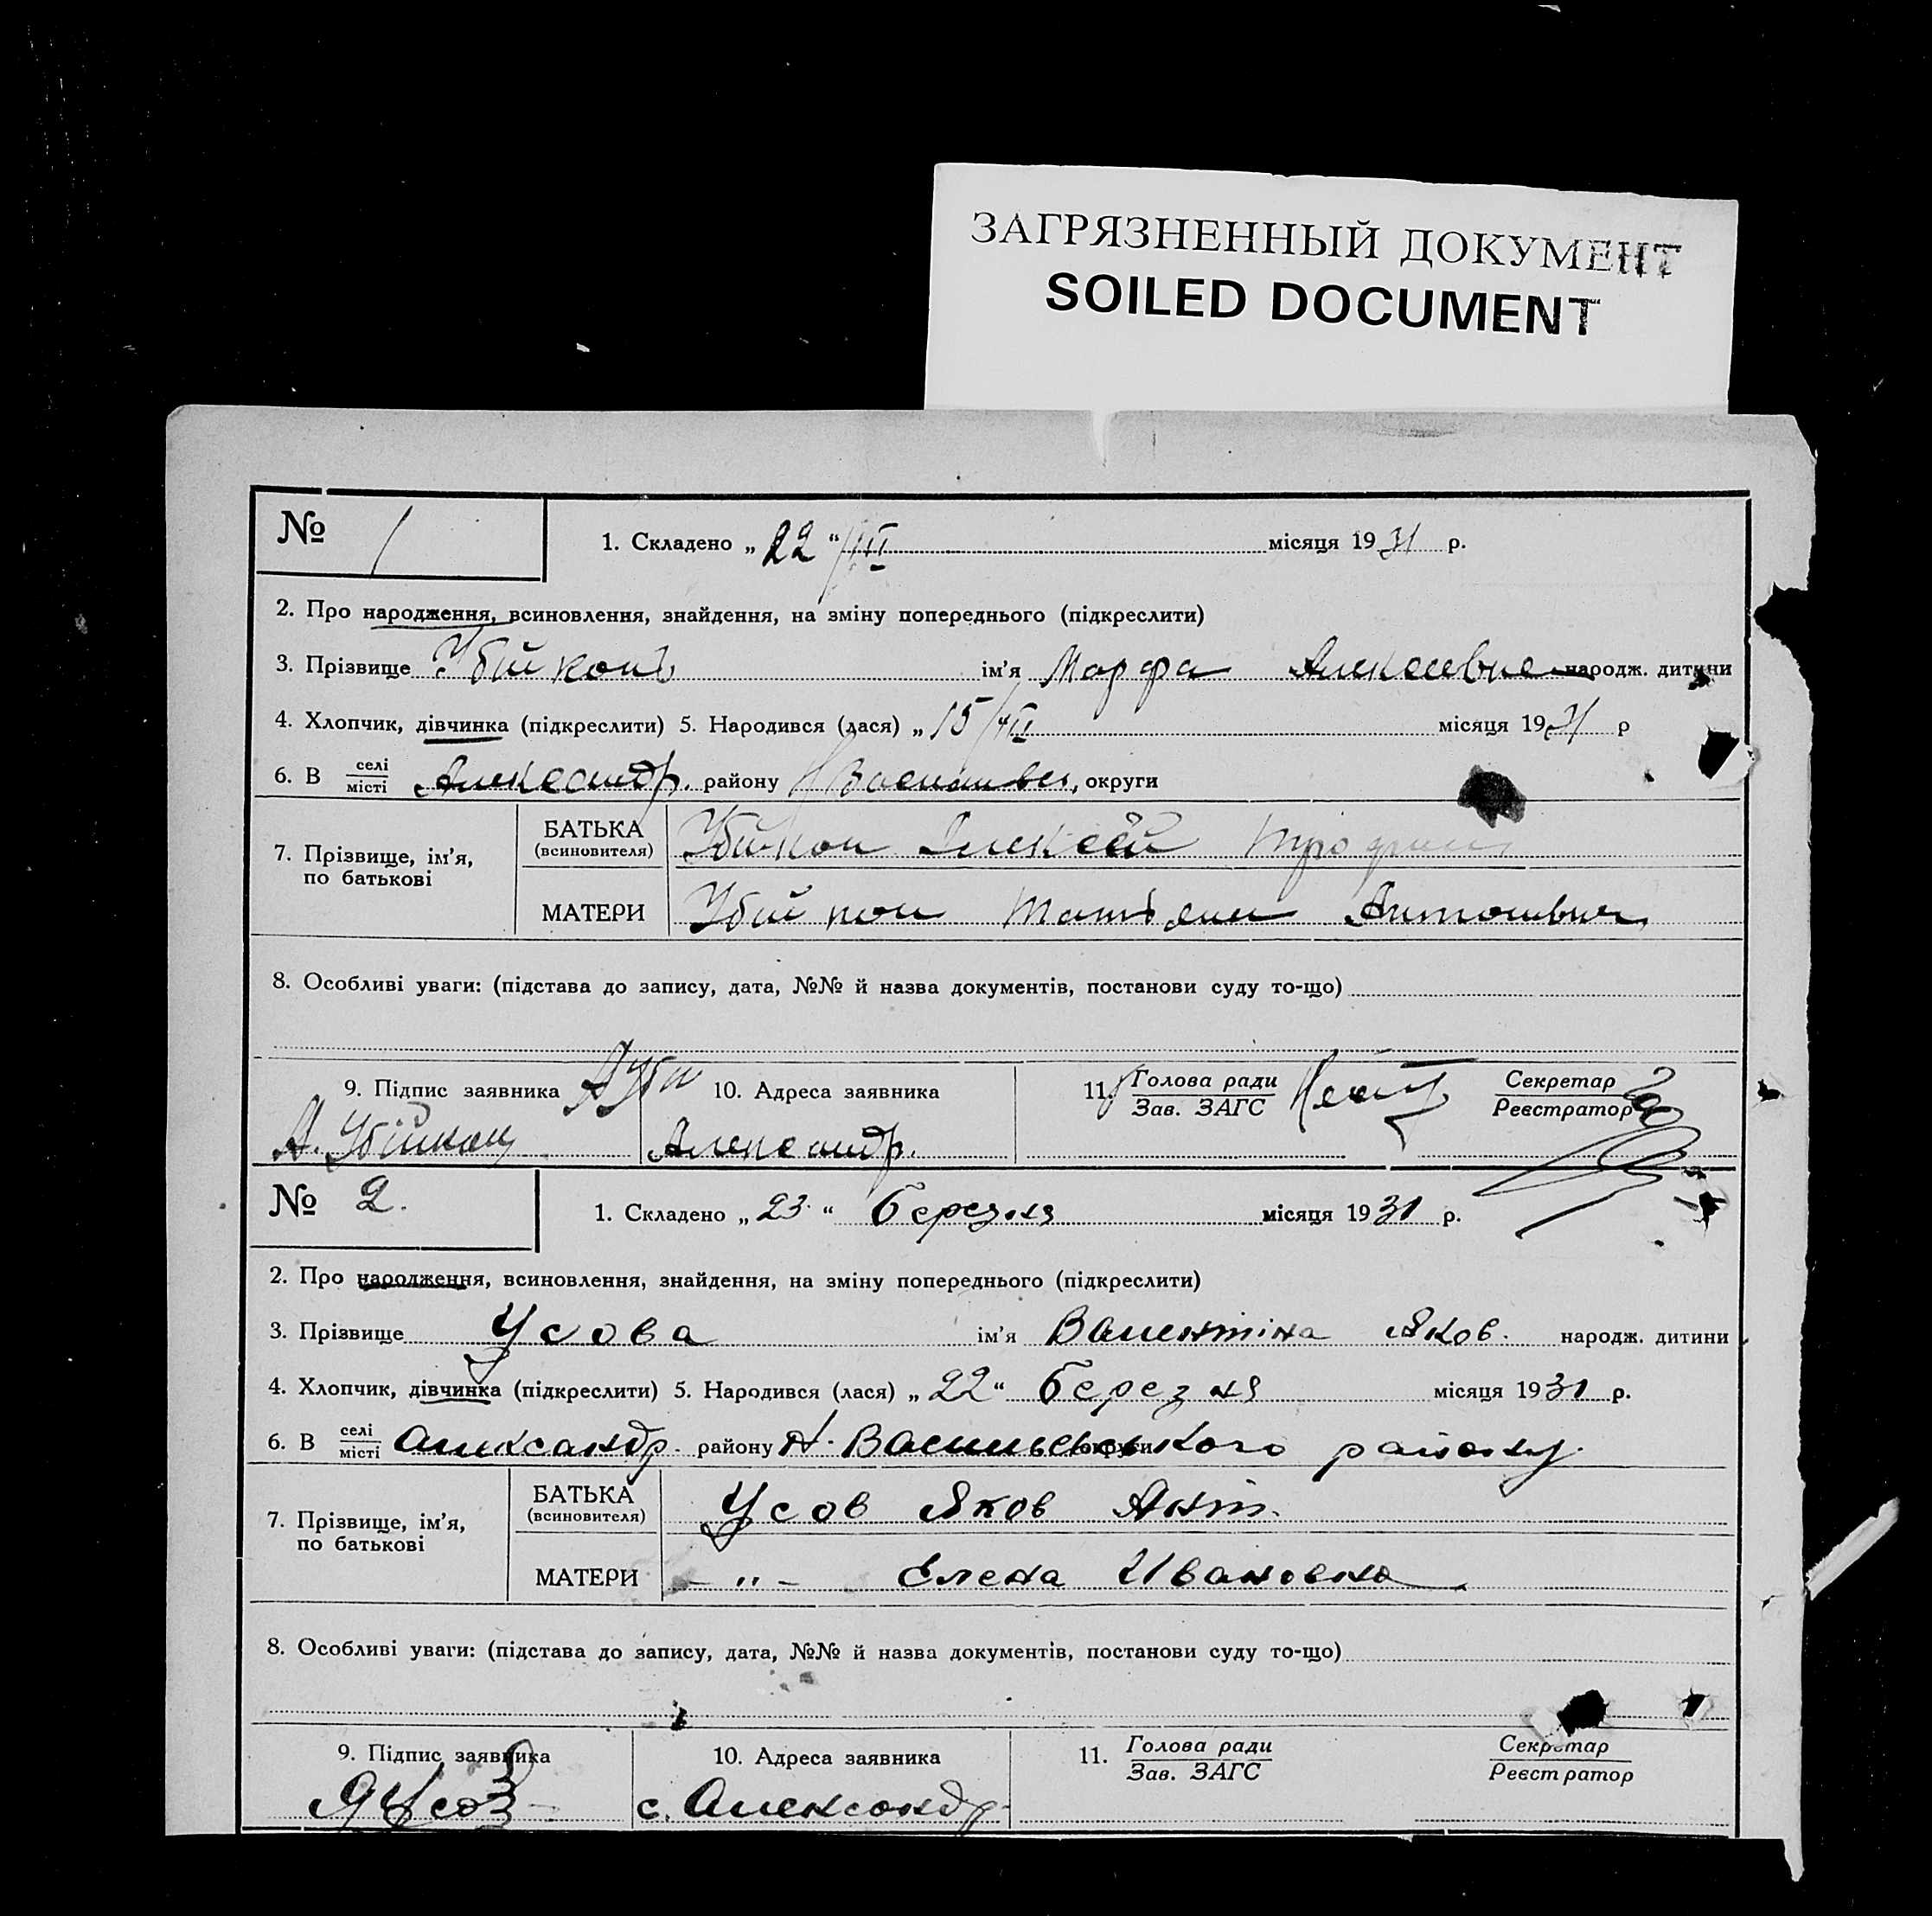 ЗАГРЯЗНЕННЫЙ ДОКУМЕНТ
SOILED DOCUMENT
№ 1
1. Складено „22“/III місяця 1931 р.
2. Про народження, всиновлення, знайдення, на зміну попереднього (підкреслити)
3. Прізвище ім'я Марфа Алексеевна народж. дитини
4. Хлопчик, дівчинка (підкреслити) 5. Народився (лася) „15/III місяця 1931 р
6. В селі/місті Александр. району округи
7. Прізвище, ім'я, по батькові
БАТЬКА (всиновителя) Убийкон Алексей
МАТЕРИ Убийкон Антоновна
8. Особливі уваги: (підстава до запису, дата, №№ й назва документів, постанови суду то-що)
9. Підпис заявника
10. Адреса заявника
11. Голова ради/Зав. ЗАГС
Секретар/Реєстратор
Александр.
№ 2.
1. Складено „23.“ березня місяця 1931 р.
2. Про народження, всиновлення, знайдення, на зміну попереднього (підкреслити)
3. Прізвище Усова ім'я Валентіна Яков. народж. дитини
4. Хлопчик, дівчинка (підкреслити) 5. Народився (лася) „22“ березня місяця 1931 р.
6. В селі/місті Александр. району Н. Васильевського округи району.
7. Прізвище, ім'я, по батькові
БАТЬКА (всиновителя) Усов Яков Ант.
МАТЕРИ -"- Елена Ивановна
8. Особливі уваги: (підстава до запису, дата, №№ й назва документів, постанови суду то-що)
9. Підпис заявника
10. Адреса заявника
11. Голова ради/Зав. ЗАГС
Секретар/Реєстратор
Я Усов
с. Александр.